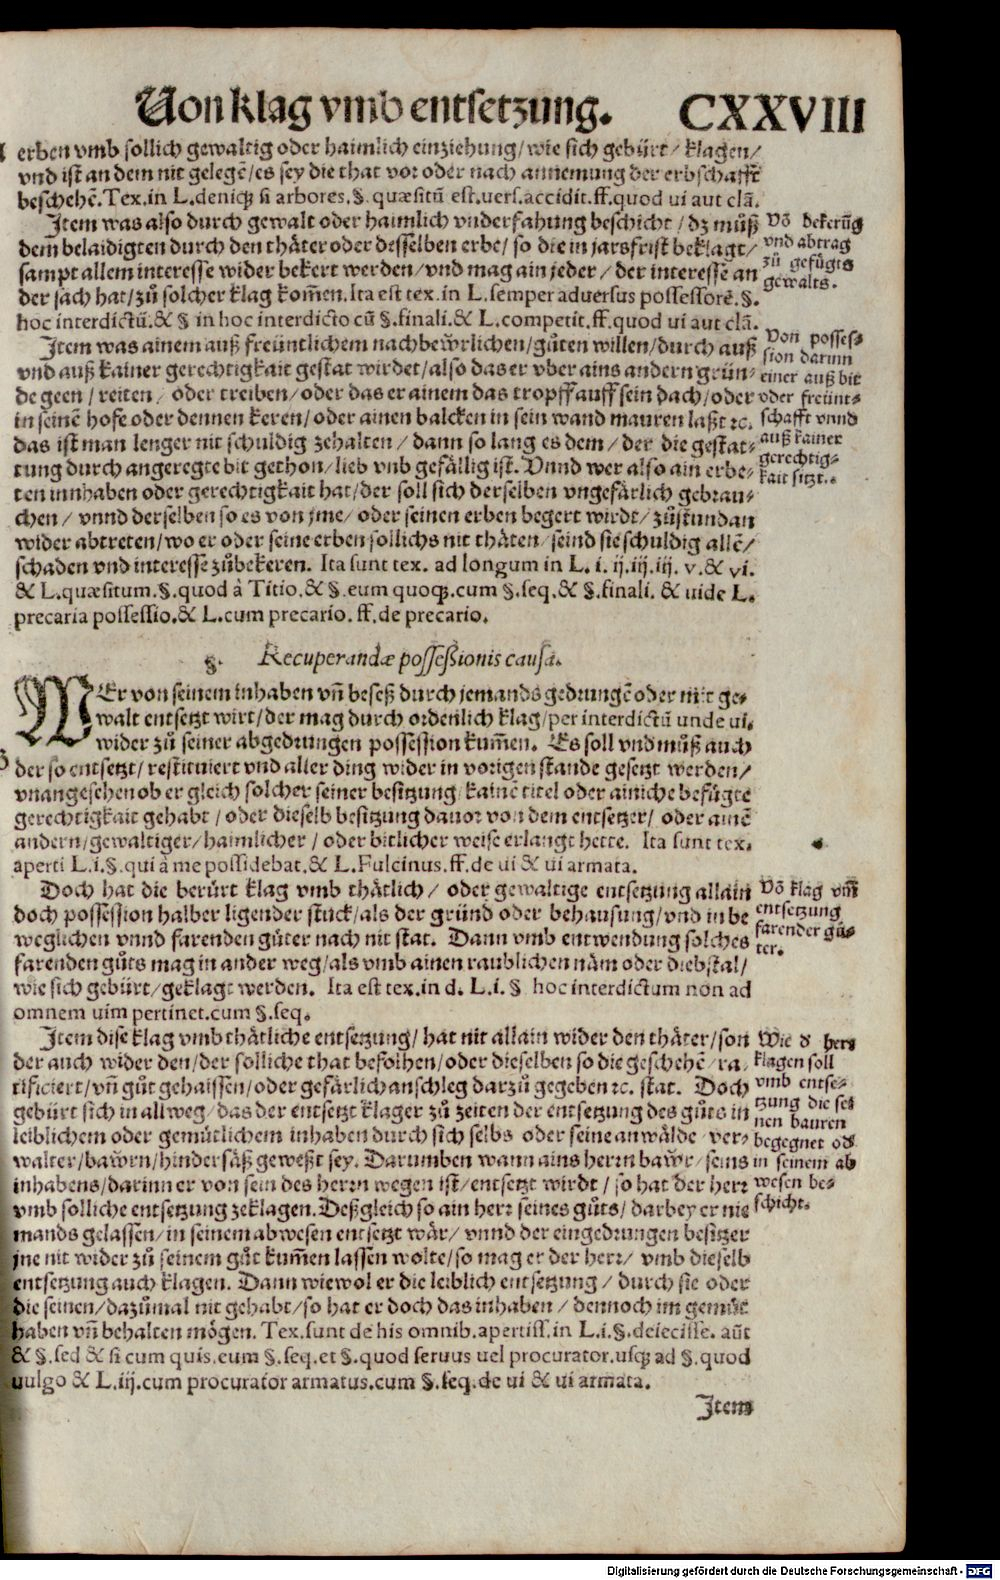 Von klag vmb entsetzung. CXXVIII
erben vmb sollich gewaltig oder haimlich einziehung/ wie sich gebürt/ klagen/
vnd ist an dem nit gelegē/ es sey die that vor oder nach annemung der erbschafft
beschehē. Tex. in L. deniqꝫ si arbores. §. quæsitū est. vers. accidit. ff. quod ui aut clā.
Item was also durch gewalt oder haimlich vnderfahung beschicht/ dz můß
dem belaidigten durch den thäter oder desselben erbe/ so die in jarsfrist beklagt/
sampt allem interesse wider bekert werden/ vnd mag ain jeder/ der interesse an
der sach hat/ zů solcher klag kom̄en. Ita est tex. in L. semper adversus possessorē. §.
hoc interdictū. & § in hoc interdicto cū §. finali. & L. competit. ff. quod ui aut clā.
Vō bekerūg
vnd abtrag
zů gefůgts
gewalts.
Item was ainem auß freüntlichem nachbewrlichen/ gůten willen/ durch auß
vnd auß kainer gerechtigkait gestat wirdet/ also das er vber ains andern grün-
de geen/ reiten/ oder treiben/ oder das er ainem das tropff auff sein dach/ oder
in seinē hofe oder dennen keren/ oder ainen balcken in sein wand mauren laßt ꝛc.
das ist man lenger nit schuldig zehalten/ dann so lang es dem/ der die gestat-
tung durch angeregte bit gethon/ lieb vnb gefällig ist. Vnnd wer also ain erbe-
ten innhaben oder gerechtigkait hat/ der soll sich derselben vngefärlich gebrau-
chen/ vnnd derselben so es von jme/ oder seinen erben begert wirdt/ zůstundan
wider abtreten/ wo er oder seine erben sollichs nit thäten/ seind sie schuldig allē/
schaden vnd interesse zůbekeren. Ita sunt tex. ad longum in L. i. ij. iij. iij. v. & vi.
& L. quæsitum. §. quod à Titio. & §. eum quoqꝫ. cum §. seq. & §. finali. & uide L.
precaria possessio. & L. cum precario. ff. de precario.
Von posses-
sion darinn
einer auß bit
oder freünt-
schafft vnnd
auß kainer
gerechtig-
kait sitzt.
§. Recuperandæ possessionis causa.
WEr von seinem inhaben vn̄ beseß durch jemands gedrungē oder mit ge-
walt entsetzt wirt/ der mag durch ordenlich klag/ per interdictū unde ui.
wider zů seiner abgedrungen possession kum̄en. Es soll vnd můß auch
der so entsetzt/ restituiert vnd aller ding wider in vorigen stande gesetzt werden/
vnangesehen ob er gleich solcher seiner besitzung/ kainē titel oder ainiche befügte
gerechtigkait gehabt/ oder dieselb besitzung dauor von dem entsetzer/ oder ainē
andern/ gewaltiger/ haimlicher/ oder bitlicher weise erlangt hette. Ita sunt tex.
aperti L. i. §. qui à me possidebat. & L. Fulcinus. ff. de ui & ui armata.
Doch hat die berürt klag vmb thätlich/ oder gewaltige entsetzung allain
doch possession halber ligender stuck/ als der gründ oder behausung/ vnd in be
weglichen vnnd farenden güter nach nit stat. Dann vmb entwendung solches
farenden gůts mag in ander weg/ als vmb ainen raublichen näm oder diebstal/
wie sich gebürt/ geklagt werden. Ita est tex. in d. L. i. § hoc interdictum non ad
omnem uim pertinet. cum §. seq.
Vō klag vm̄
entsetzung
farender gü-
ter.
Item dise klag vmb thätliche entsetzung/ hat nit allain wider den thäter/ son
der auch wider den/ der solliche that befolhen/ oder dieselben so die geschehē/ ra-
tificiert/ vn̄ gůt gehaissen/ oder gefärlich anschleg darzů gegeben ꝛc. stat. Doch
gebürt sich in allweg/ das der entsetzt klager zů zeiten der entsetzung des gůts in
leiblichem oder gemütlichem inhaben durch sich selbs oder seine anwälde/ ver-
walter/ bawrn/ hindersäß geweßt sey. Darumben wann ains herrn bawr/ seins
inhabens/ darinn er von sein des herrn wegen ist/ entsetzt wirdt/ so hat der herr
vmb solliche entsetzung zeklagen. Deßgleich so ain herr seines gůts/ darbey er nie
mands gelassen/ in seinem abwesen entsetzt wär/ vnnd der eingedrungen besitzer
jne nit wider zů seinem gůt kum̄en lassen wolte/ so mag er der herr/ vmb dieselb
entsetzung auch klagen. Dann wiewol er die leiblich entsetzung/ durch sie oder
die seinen/ dazůmal nit gehabt/ so hat er doch das inhaben/ dennoch im gemüt
haben vn̄ behalten mögen. Tex. sunt de his omnib. apertiss. in L. i. §. deiecisse. aūt
& §. sed & si cum quis. eum §. seq. et §. quod seruus uel procurator. usqꝫ ad §. quod
uulgo & L. iij. cum procurator armatus. cum §. seq. de ui & ui armata.
Wie d herr
klagen soll
vmb entse-
tzung die sei
nen bauren
begegnet od
in seinem ab
wesen be-
schicht.
Item
Digitalisierung gefördert durch die Deutsche Forschungsgemeinschaft - DFG